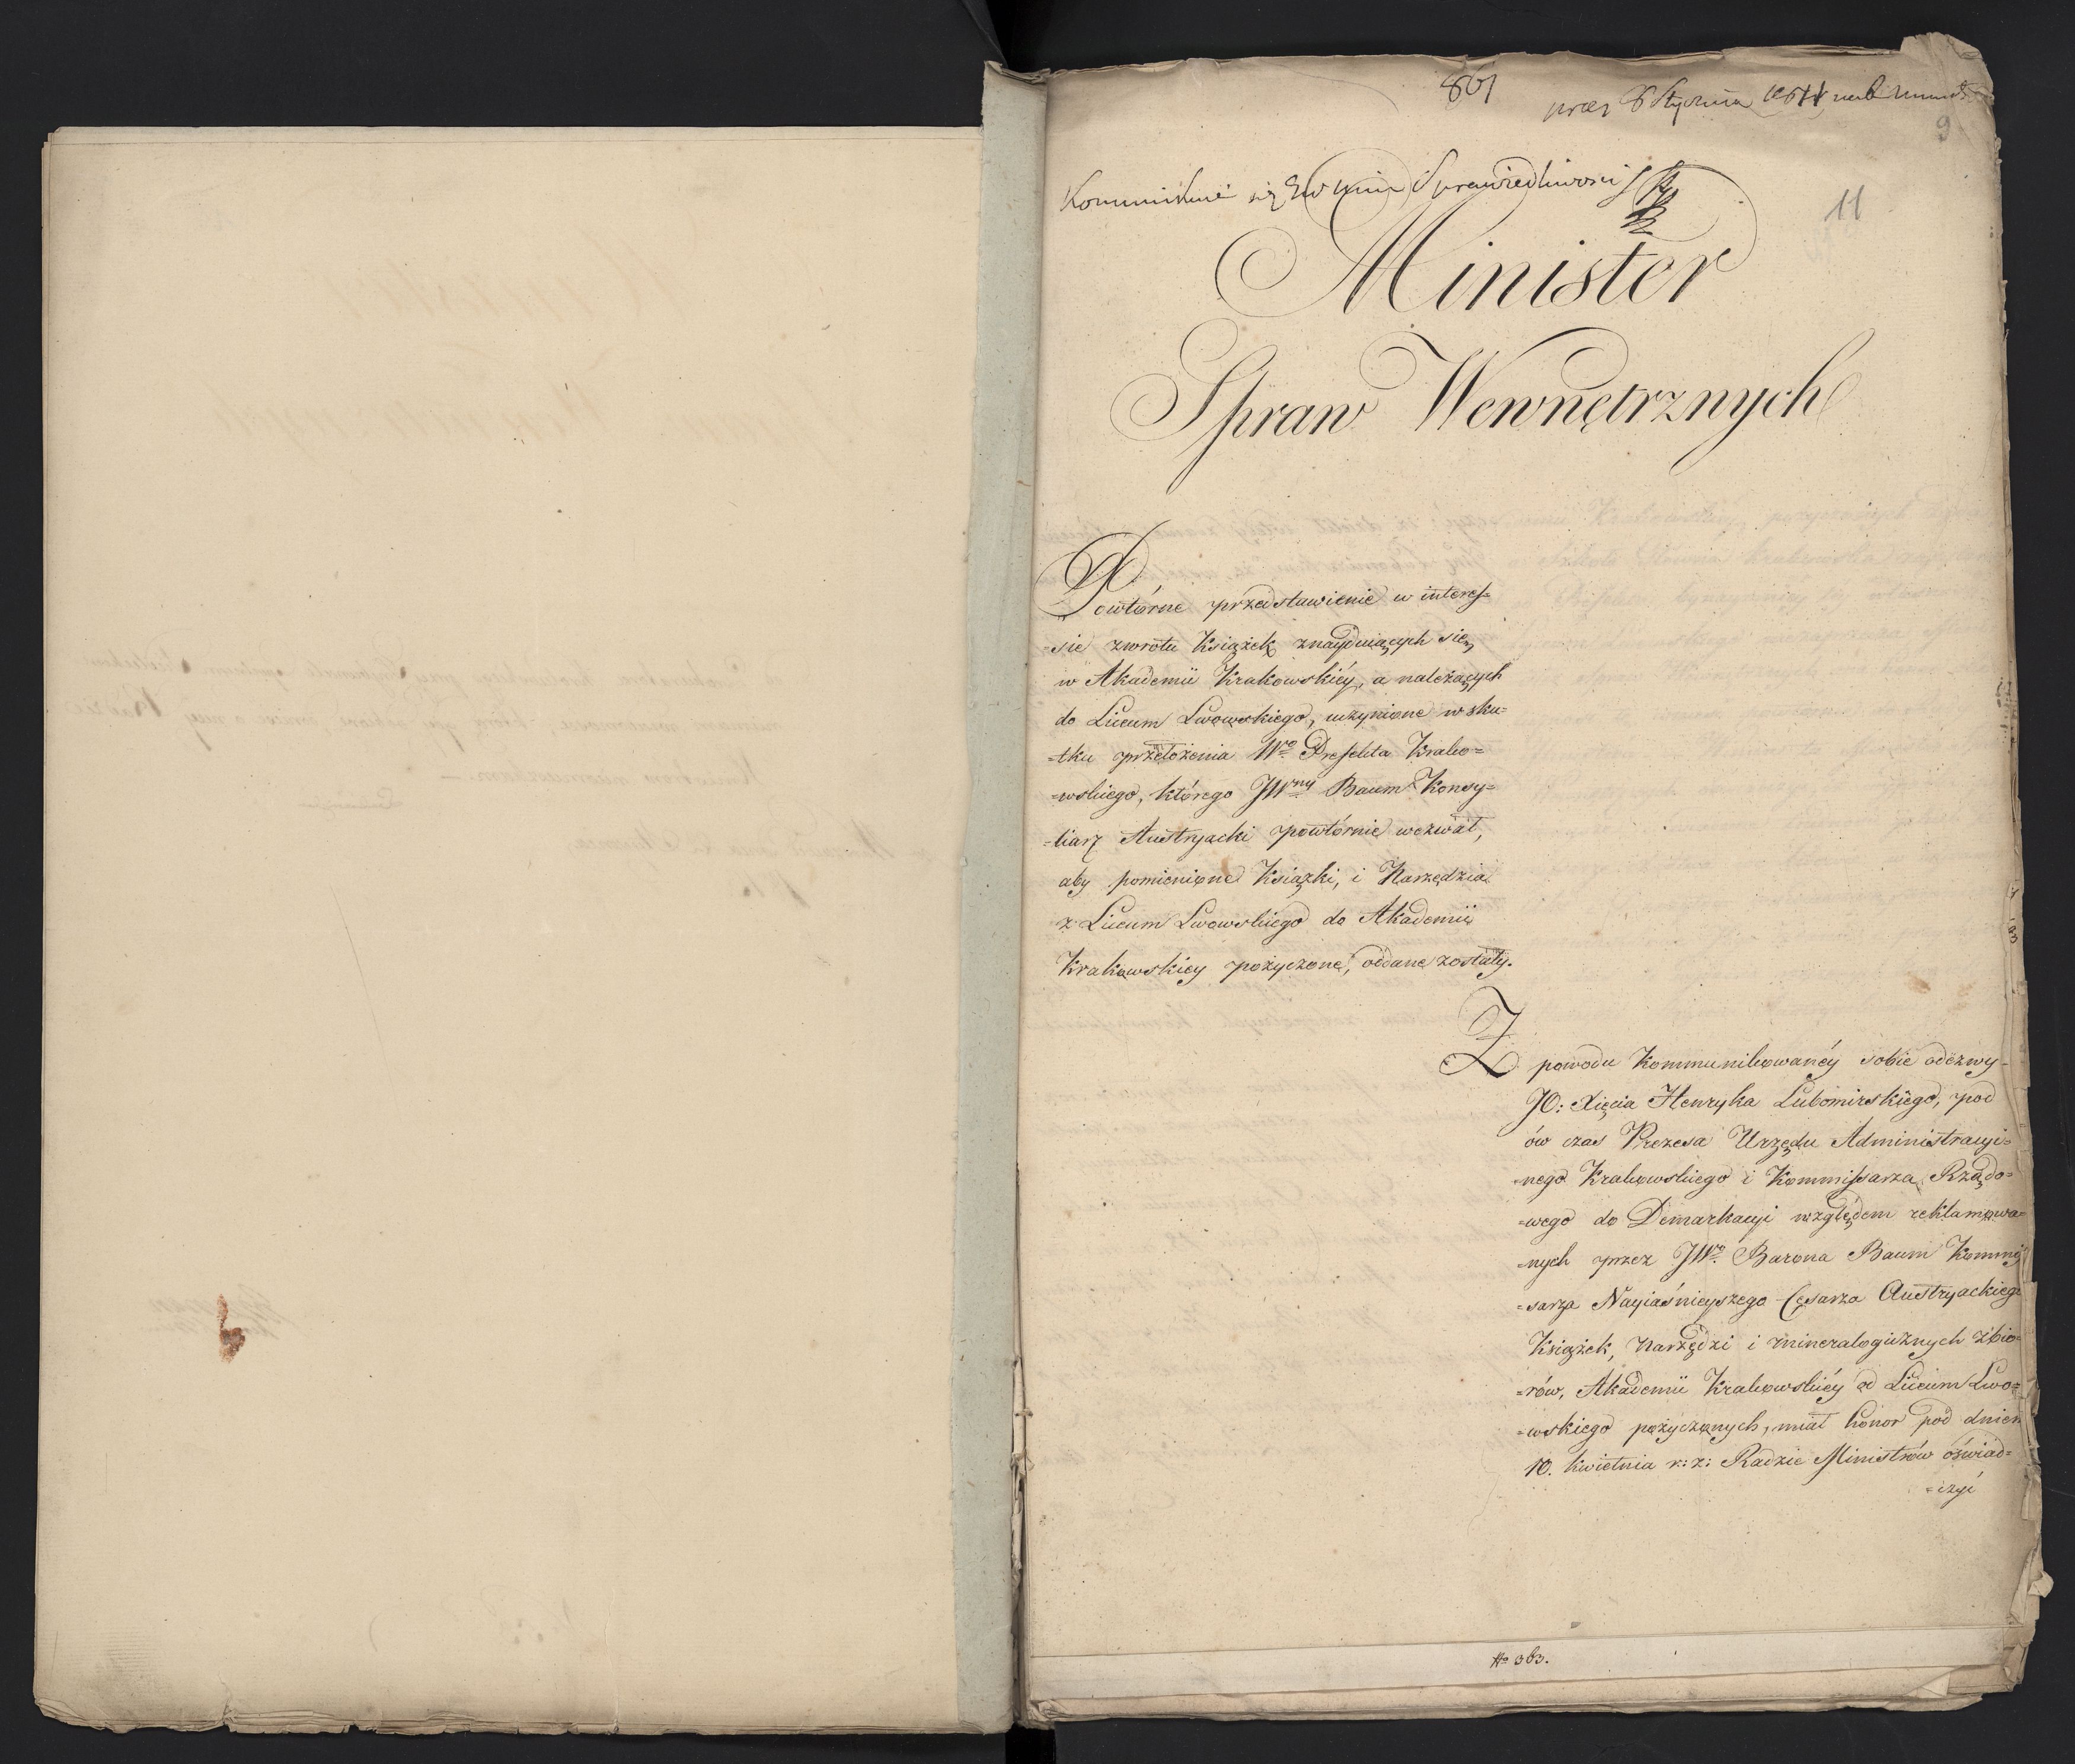 861
prez 8 Stycznia 1811
9
Kommunikuie się Sprawiedliwosci
11
Minister
Spraw Wewnętrznych
Powtórne przedstawienie w interes=
=sie zwrotu Książek znayduiących się
w Akademii Krakowskiéy, a należących
do Liceum Lwowskiego, uczynione w sku=
=tku przełożenia Wgo Prefekta Krako=
=wskiego, którego JWny Baum Konsy=
=liarz Austryacki powtórnie wezwał,
aby pomienione Książki, i Narzędzia
z Liceum Lwowskiego do Akademii
Krakowskiey pożyczone, oddane zostały.
Z powodu Kommunikowanéy sobie odezwy
JO: Xięcia Henryka Lubomirskiego, pod
ów czas Prezesa Urzędu Administracyi=
=nego Krakowskiego i Kommissarza Rządo=
=wego do Demarkacyi względem reklamowa=
=nych przez JWo Barona Baum Kommis
=sarza Nayiaśnieyszego Cesarza Austryackiego
Książek, Narzędzi i mineralogicznych zbio=
=rów, Akademii Krakowskiéy od Liceum Lwo=
=wskiego pożyczonych, miał honor pod dniem
10. Kwietnia r: z: Radzie Ministrów oświad=
=czyć
No 363.